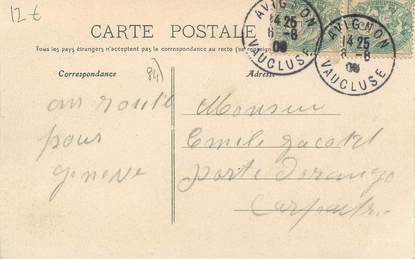 12-€
CARTE POSTALE
Tous les pays étrangers n'acceptent pas la correspondance au recto (se renseigner
AVIGNON
14 25
6-8
06
VAUCLUSE
AVIGNON
14 25
6-8
06
VAUCLUSE
Correspondance
84)
Adresse
en route
pour
geneve
Monsieur
Emile
porte Dorange
Carpentras